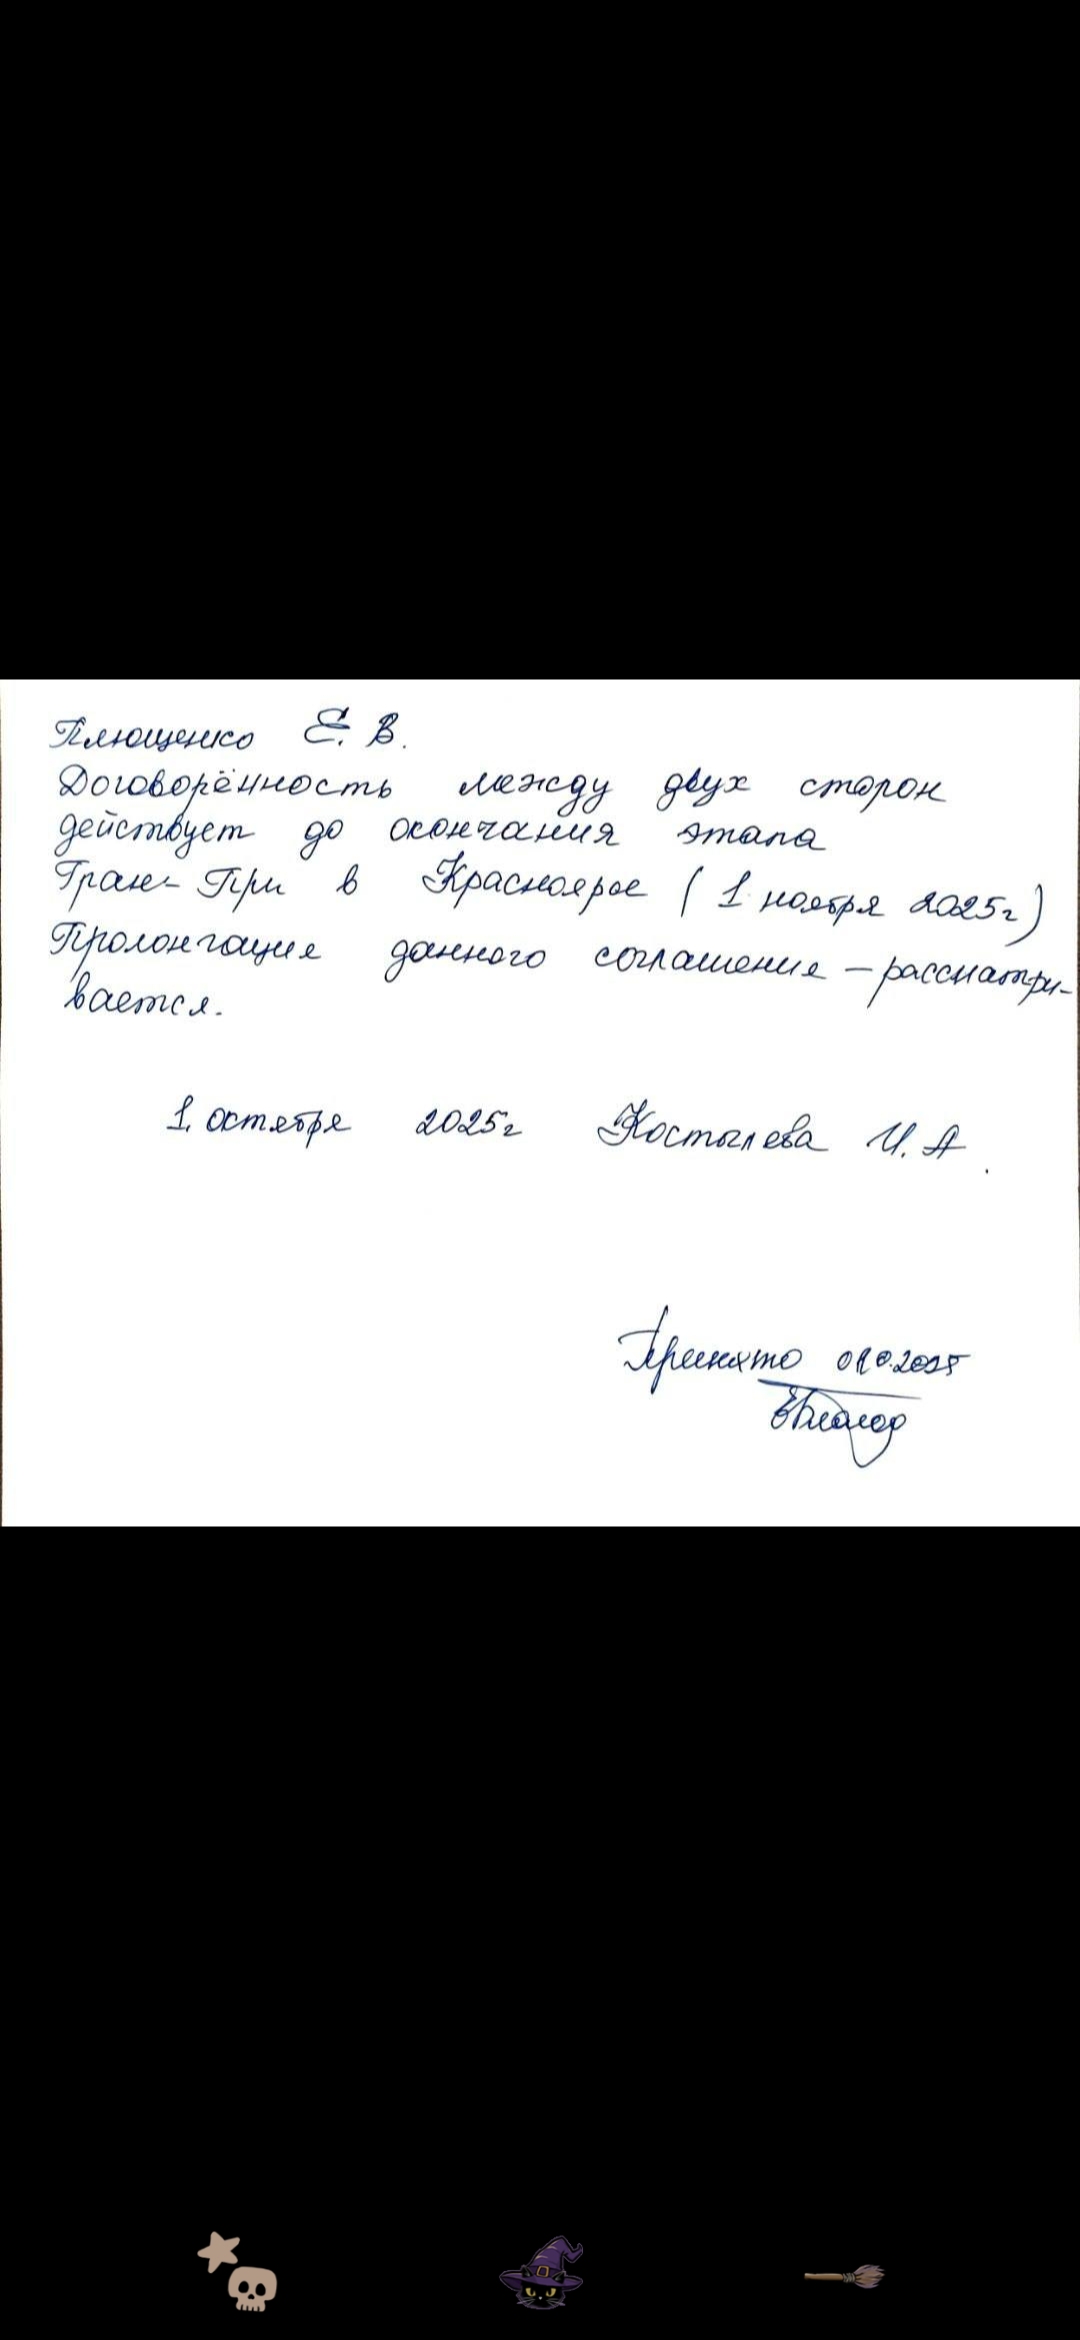 Плющенко Е. В.
Договорённость между двух сторон
действует до окончания этапа
Гран-При в Красноярске (1 ноября 2025г)
Пролонгация данного соглашения – рассматри-
вается.
1 октября 2025г Костылева И. А.
Принято